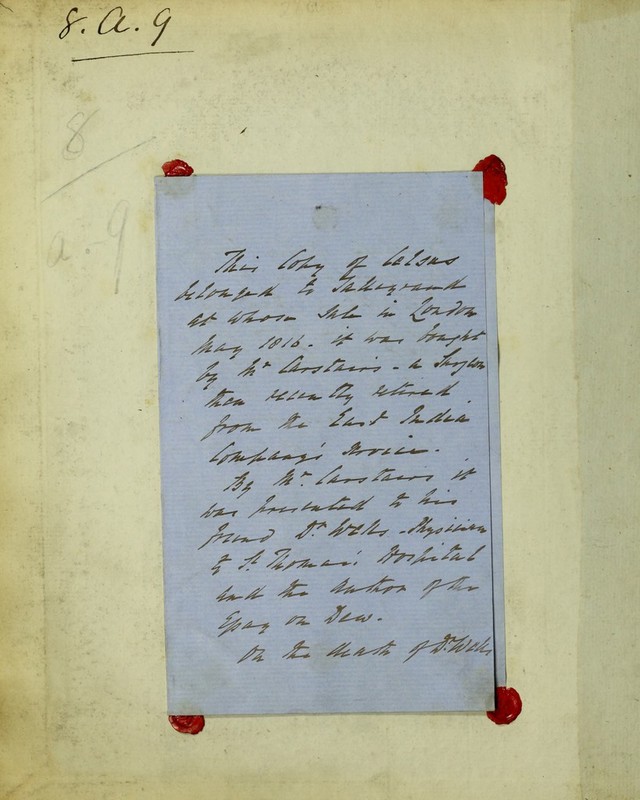 8. a. 9
8
a-9
This Copy of Celsus
belonged to Talleyrand
at whose Sale in London
May 1816. it was bought
by Mr Carstairs - a Surgeon
then recently retired
from the East India
Company's Service.
By Mr Carstairs it
was presented to his
friend Dr Wells - Physician
to St Thomas's Hospital
and the Author of the
Essay on Dew.
On the death of Dr Wells